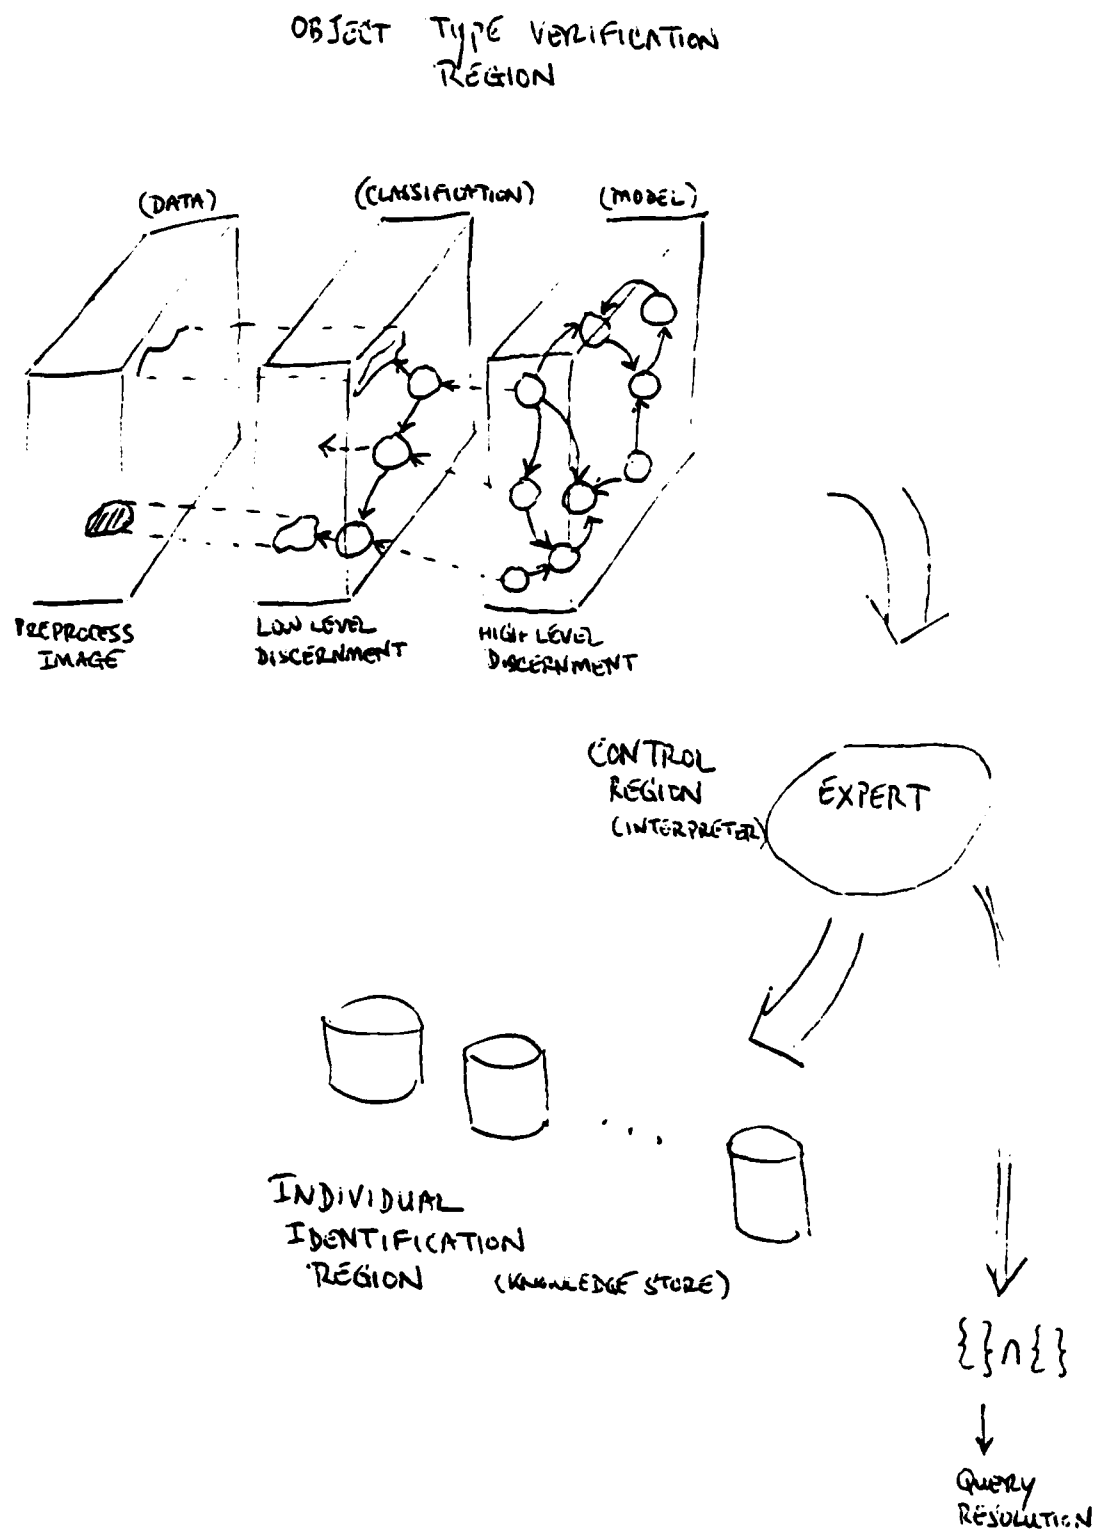 OBJECT TYPE VERIFICATION
REGION
(DATA)
(CLASSIFICATION)
(MODEL)
PREPROCESS
IMAGE
LOW LEVEL
DISCERNMENT
HIGH LEVEL
DISCERNMENT
CONTROL
REGION
(INTERPRETER)
EXPERT
INDIVIDUAL
IDENTIFICATION
REGION (KNOWLEDGE STORE)
{ } ∩ { }
QUERY
RESOLUTION